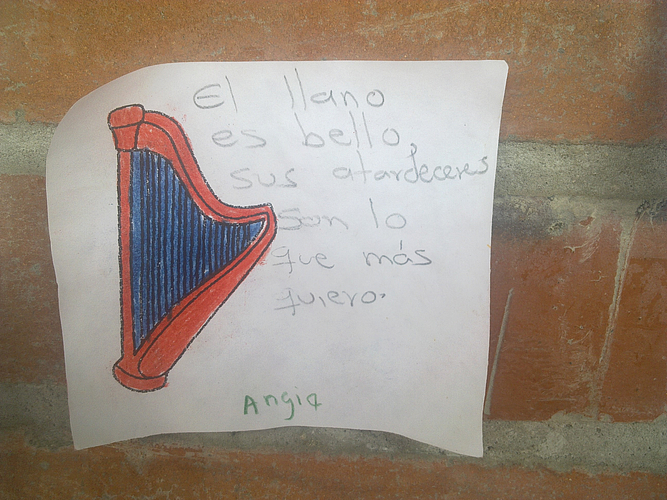 El llano
es bello,
sus atardeceres
son lo
que más
quiero.
Angia